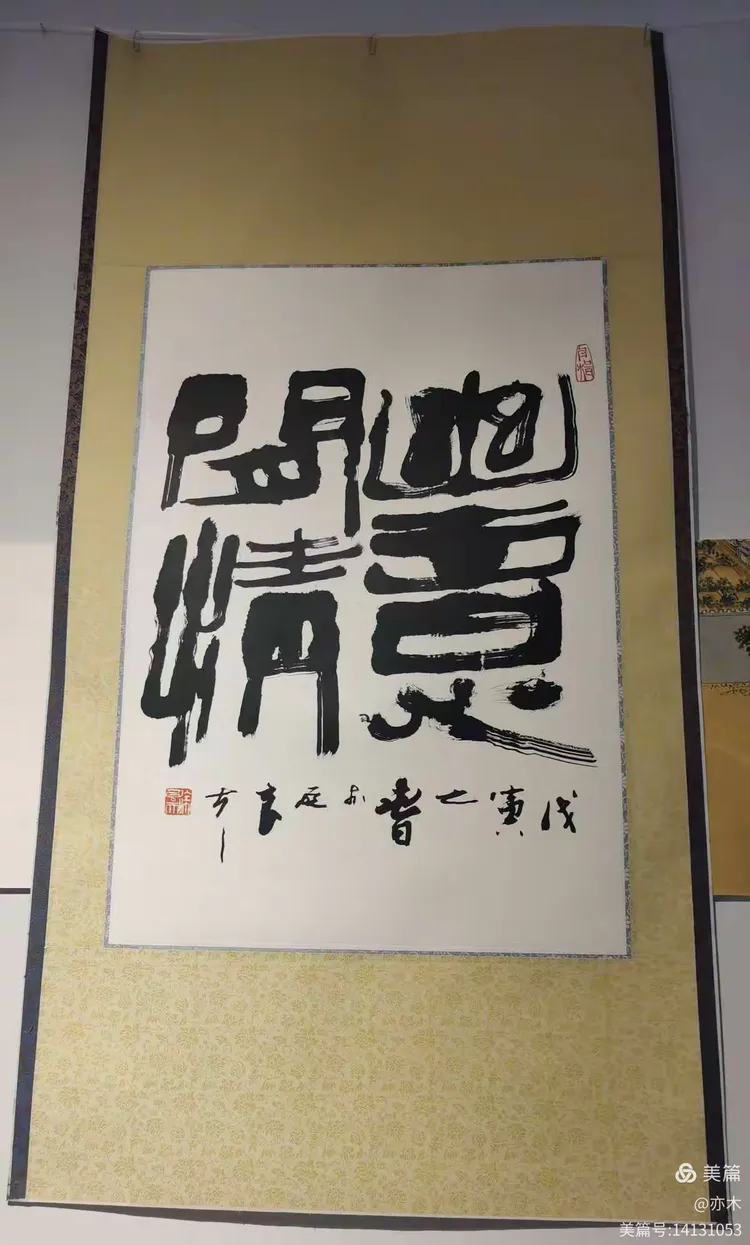 幽意
閒情
戊寅之春於
美篇
@亦木
美篇号:14131053